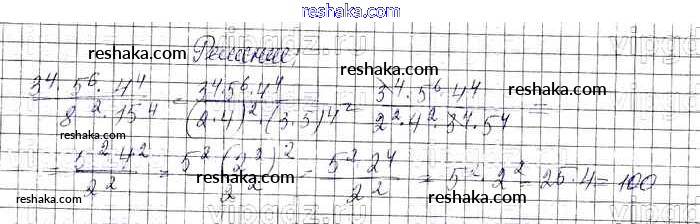 reshaka.com
Решение:
reshaka.com
reshaka.com
3⁴·5⁶·4⁴ / 8²·15⁴ = 3⁴·5⁶·4⁴ / (2·4)²·(3·5)⁴ = 3⁴·5⁶·4⁴ / 2²·4²·3⁴·5⁴ =
reshaka.com
reshaka.com
= 5²·4² / 2² = 5²(2²)² / 2² = 5² 2⁴ / 2² = 5²·2² = 25·4 = 100
reshaka.com
reshaka.com
reshaka.com